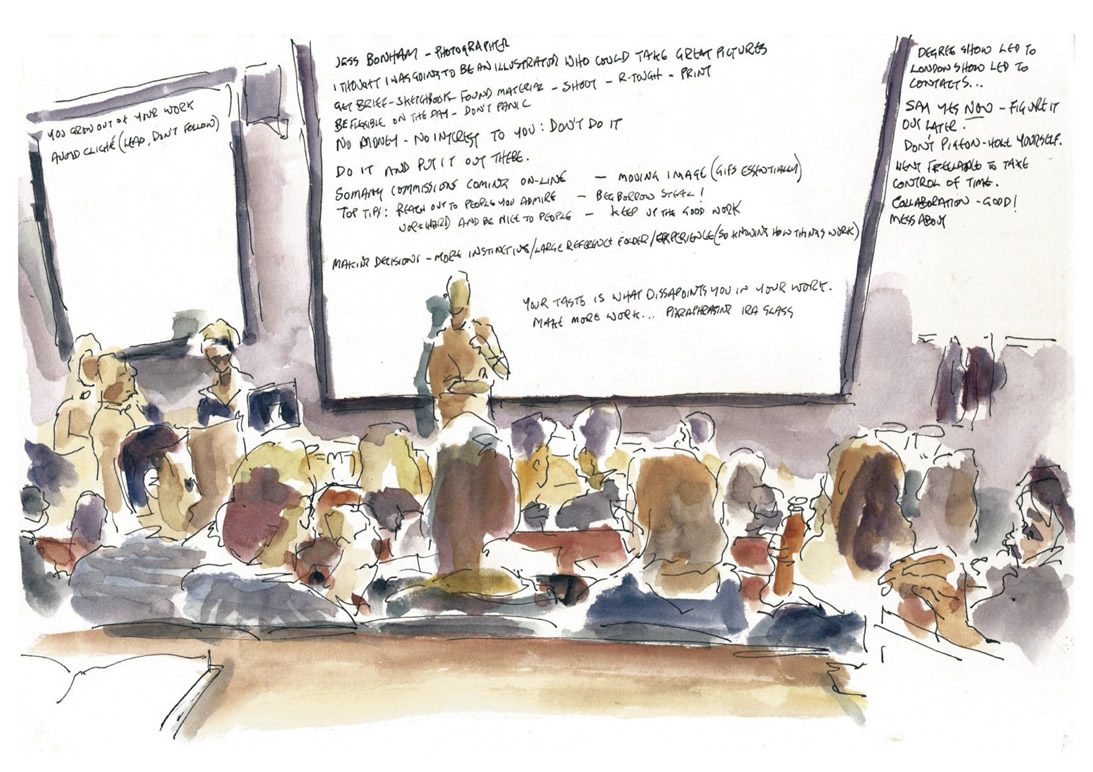 YOU GROW OUT OF YOUR WORK
AVOID CLICHÉ (LEAD, DON'T FOLLOW)
JESS BONHAM - PHOTOGRAPHER
I THOUGHT I WAS GOING TO BE AN ILLUSTRATOR WHO COULD TAKE GREAT PICTURES
GET BRIEF - SKETCHBOOK - FOUND MATERIAL - SHOOT - R-TOUCH - PRINT
BE FLEXIBLE ON THE DAY - DON'T PANIC
NO MONEY - NO INTEREST TO YOU : DON'T DO IT
DO IT AND PUT IT OUT THERE.
SO MANY COMMISSIONS COMING ON-LINE - MOVING IMAGE (GIFS ESSENTIALLY)
TOP TIPS : REACH OUT TO PEOPLE YOU ADMIRE - BEG BORROW STEAL !
WORK HARD AND BE NICE TO PEOPLE - KEEP UP THE GOOD WORK
MAKING DECISIONS - MORE INSTINCTIVE / LARGE REFERENCE FOLDER / EXPERIENCE (SO KNOWING HOW THINGS WORK)
YOUR TASTE IS WHAT DISSAPOINTS YOU IN YOUR WORK.
MAKE MORE WORK... PARAPHRASING IRA GLASS
DEGREE SHOW LED TO
LONDON SHOW LED TO
CONTACTS...
SAY YES NOW - FIGURE IT
OUT LATER.
DON'T PIGEON-HOLE YOURSELF.
WENT FREELANCE TO TAKE
CONTROL OF TIME.
COLLABORATION - GOOD!
MESS ABOUT